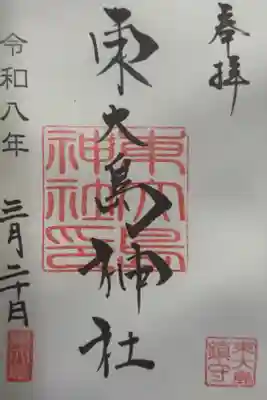 奉拝
東大島神社
東大島神社印
東大島鎮守
令和八年
三月二十日